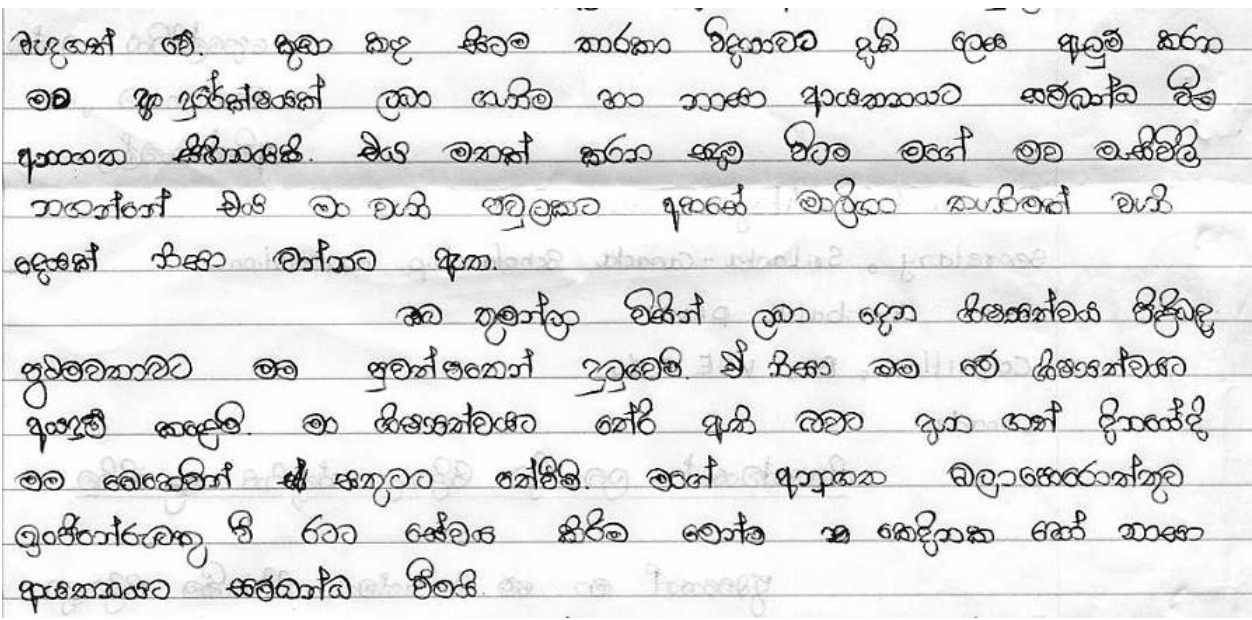 වැදගත් වේ. කුඩා කල සිටම තාරකා විද්‍යාවට දැඩි ලෙස ඇලුම් කරන
මම දුරේක්ෂයක් ලබා ගැනීම හා නාසා ආයතනයට සම්බන්ධ වීම
අනාගත සිහිනයකි. එය මතක් කරන සෑම විටම මගේ මව මැසිවිලි
නගන්නේ එය මා වැනි පවුලකට අහසේ මාලිගා තැනීමක් වැනි
දෙයක් නිසා වන්නට ඇත.
ඔබ තුමන්ලා විසින් ලබා දෙන ශිෂ්‍යත්වය පිළිබඳ
ප්‍රථමවතාවට මම පුවත්පතෙන් දුටුවෙමි. ඒ නිසා මම මෙ ශිෂ්‍යත්වයට
අයදුම් කළෙමි. මා ශිෂ්‍යත්වයට තේරී ඇති බවට දැන ගත් දිනයේදී
මම බෙහෙවින් සතුටට පත්වීමි. මගේ අනාගත බලාපොරොත්තුව
ඉංජිනේරුවකු වී රටට සේවය කිරීම මෙන්ම කෙදිනක හෝ නාසා
ආයතනයට සම්බන්ධ වීමයි.